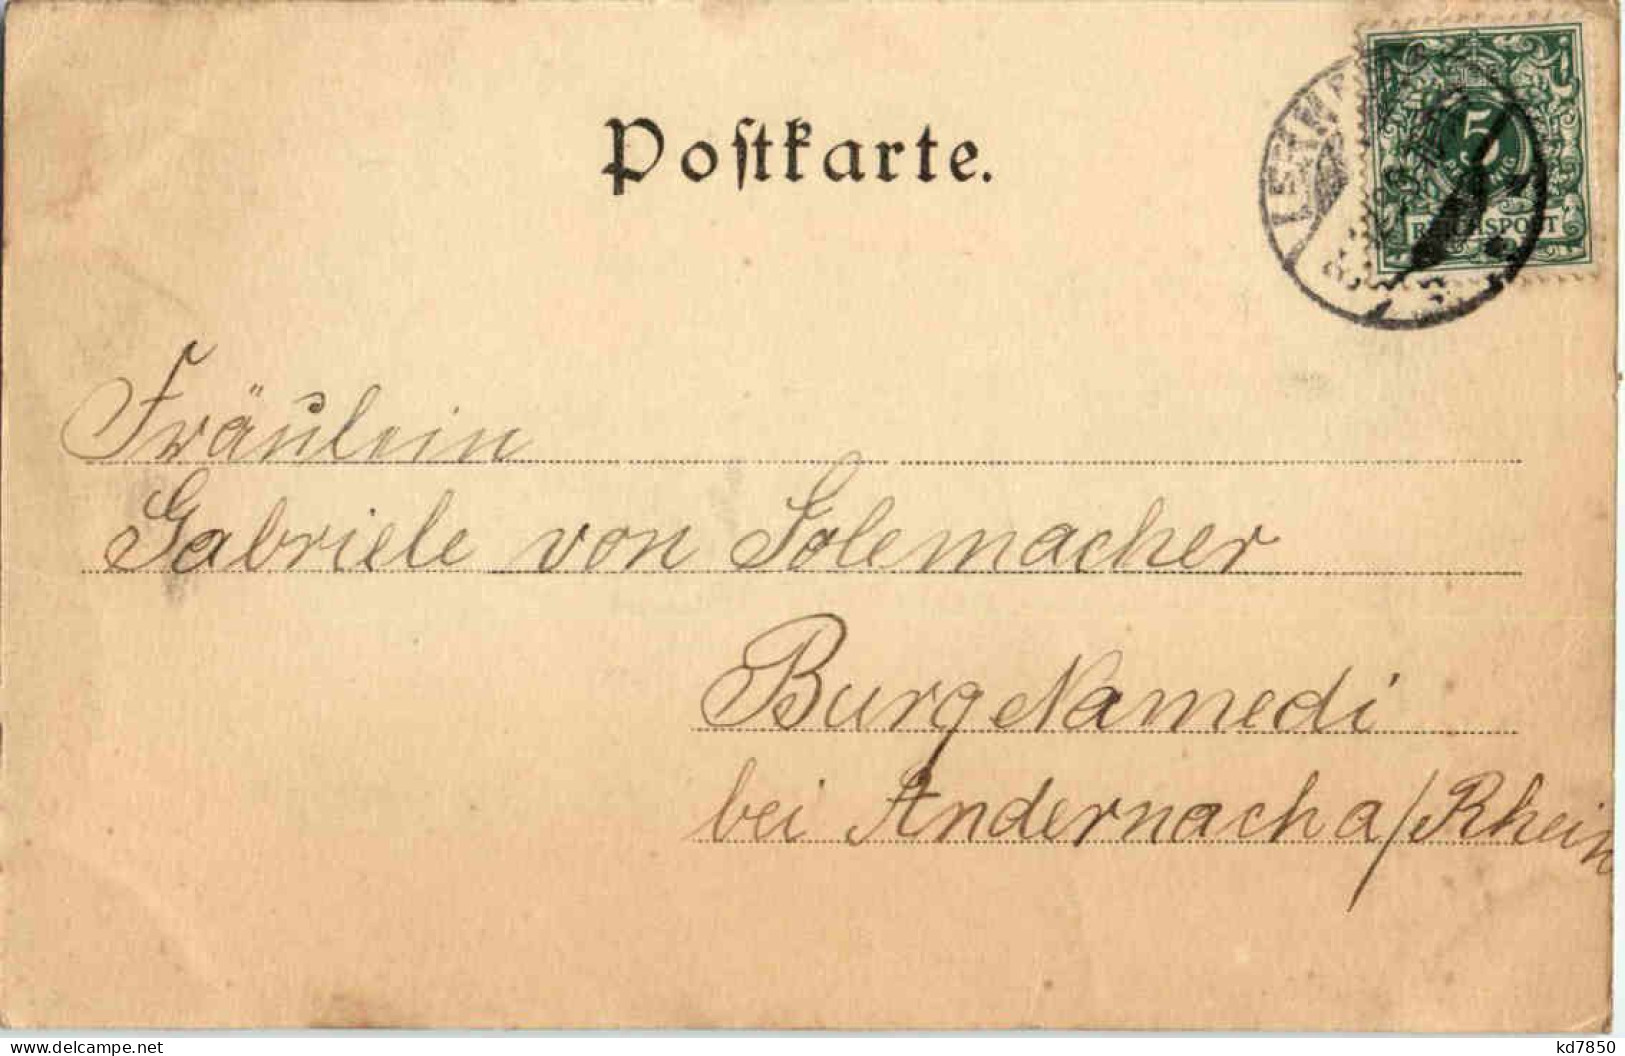 Poſtkarte.
5
PFENNIG
REICHSPOST
Fräulein
Gabriele von Solemacher
Burg Namedi
bei Andernach a/Rhein
www.delcampe.net
kd7850